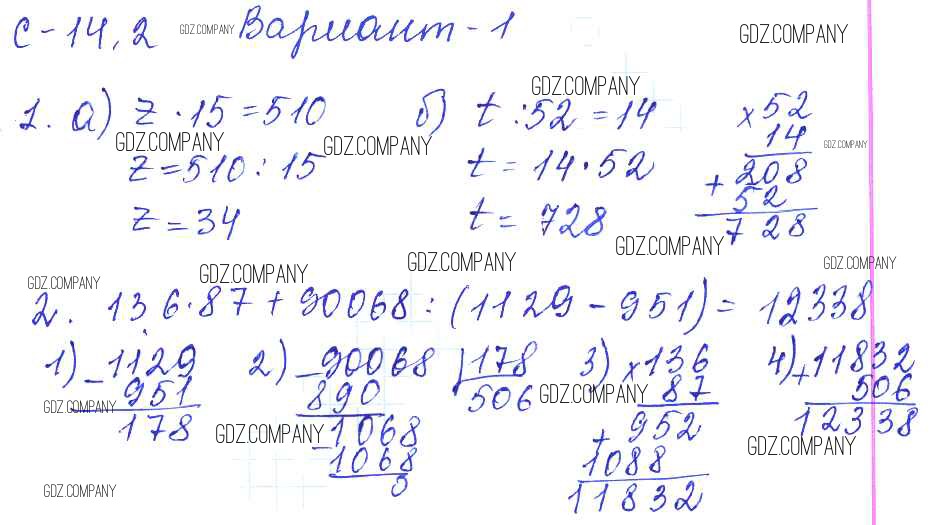 С-14, 2 GDZ.COMPANY Вариант-1 GDZ.COMPANY
GDZ.COMPANY
1. а) z · 15 = 510 б) t : 52 = 14 × 52
GDZ.COMPANY GDZ.COMPANY 14 GDZ.COMPANY
z = 510 : 15 t = 14 · 52 + 208
52
z = 34 t = 728 728
GDZ.COMPANY
GDZ.COMPANY GDZ.COMPANY GDZ.COMPANY GDZ.COMPANY
2. 136 · 87 + 90068 : (1129 - 951) = 12338
1) - 1129 2) - 90068 | 178 3) × 136 4) + 11832
951 890 506 87 506
GDZ.COMPANY GDZ.COMPANY
178 - 1068 + 952 12338
GDZ.COMPANY GDZ.COMPANY
1068 1088
0 11832
GDZ.COMPANY